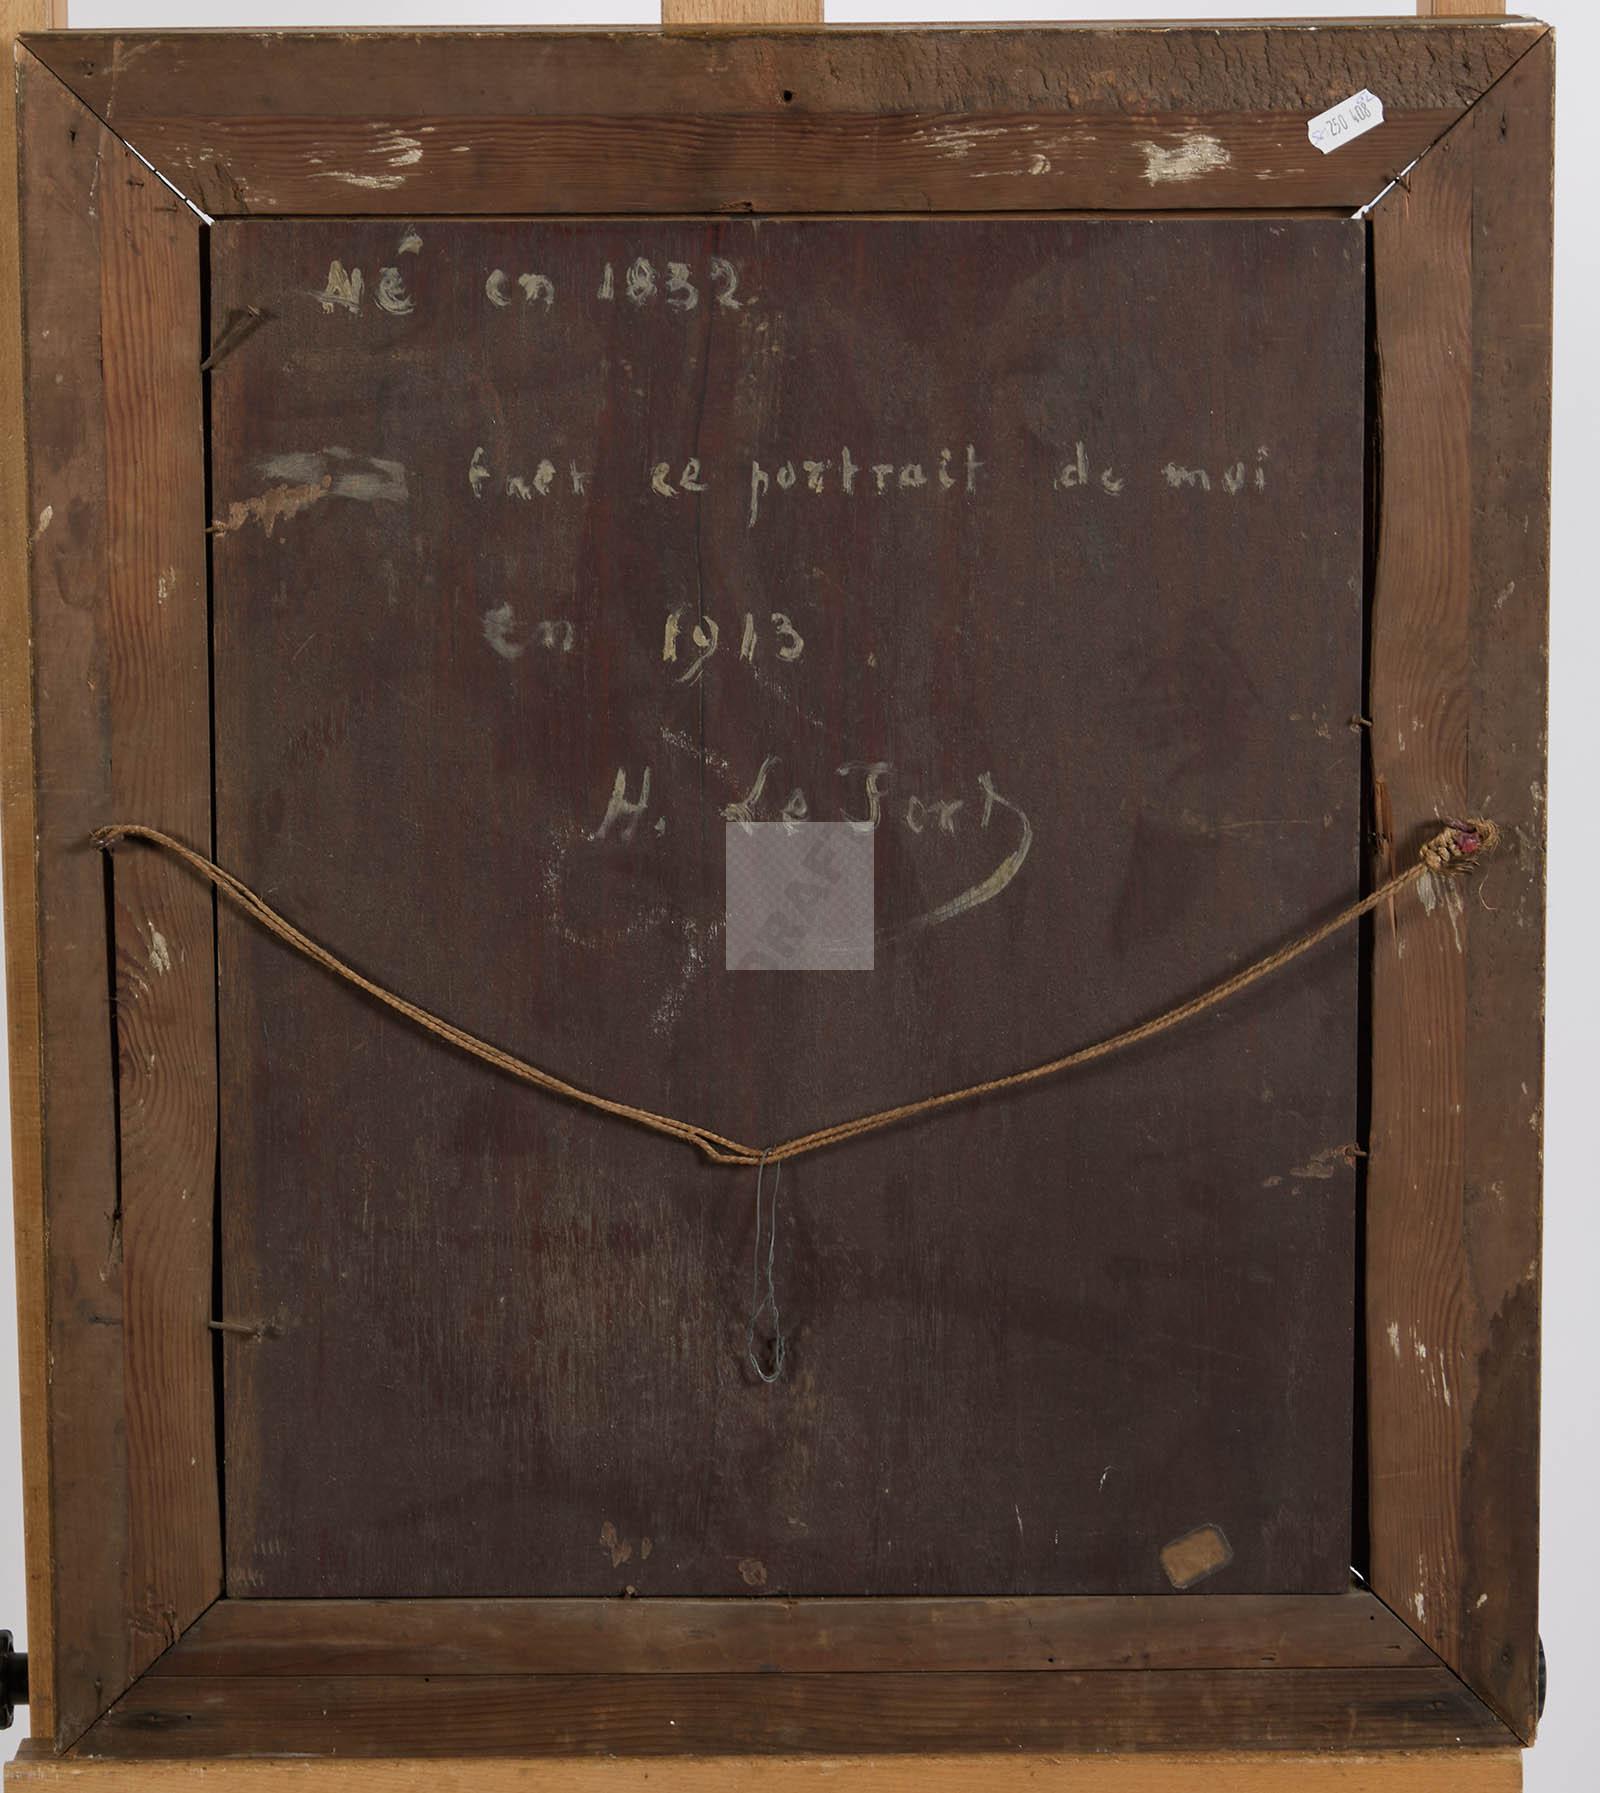 Né en 1832
ce portrait de moi
en 1913
H. Le Fort
250 408